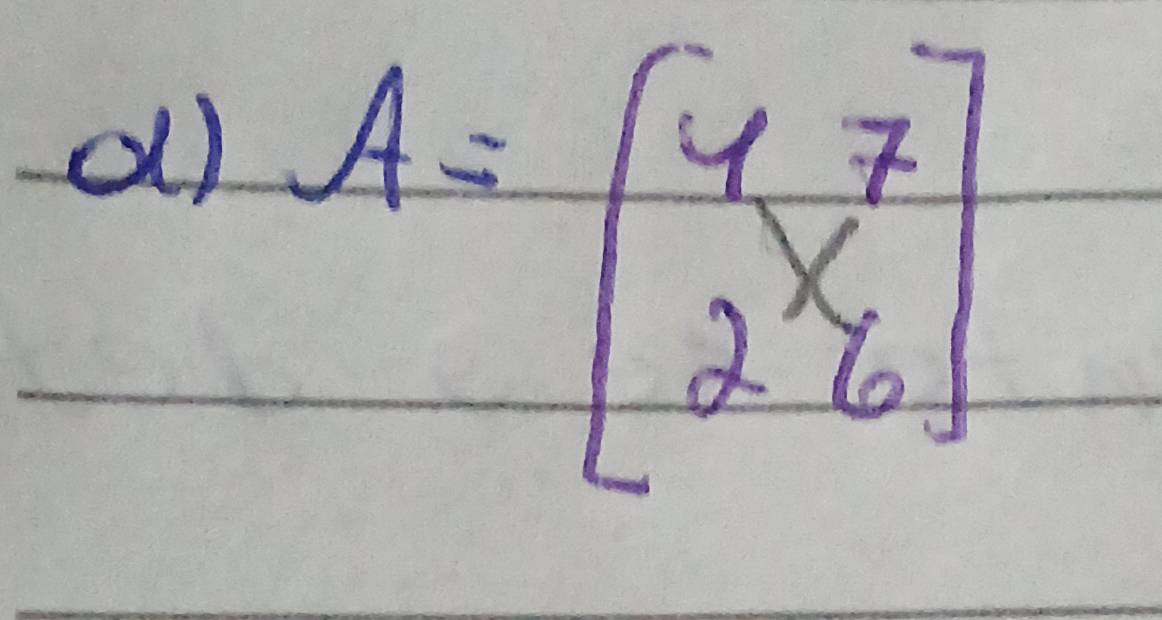 d) A = [4 7
2 6]